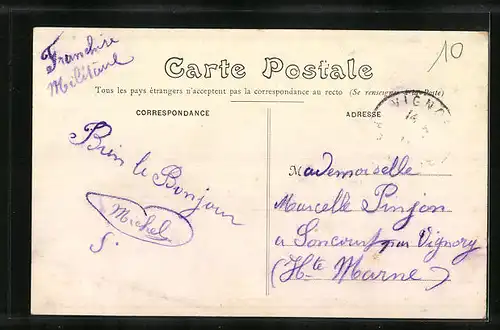 Franchise
Militaire
10
Carte Postale
Tous les pays étrangers n'acceptent pas la correspondance au recto (Se renseigner à la Poste)
CORRESPONDANCE
ADRESSE
VIGNO
14
Bien le Bonjour
Michel
S.
Mademoiselle
Marcelle Pinjon
a Soncourt par Vignory
(Hte Marne)